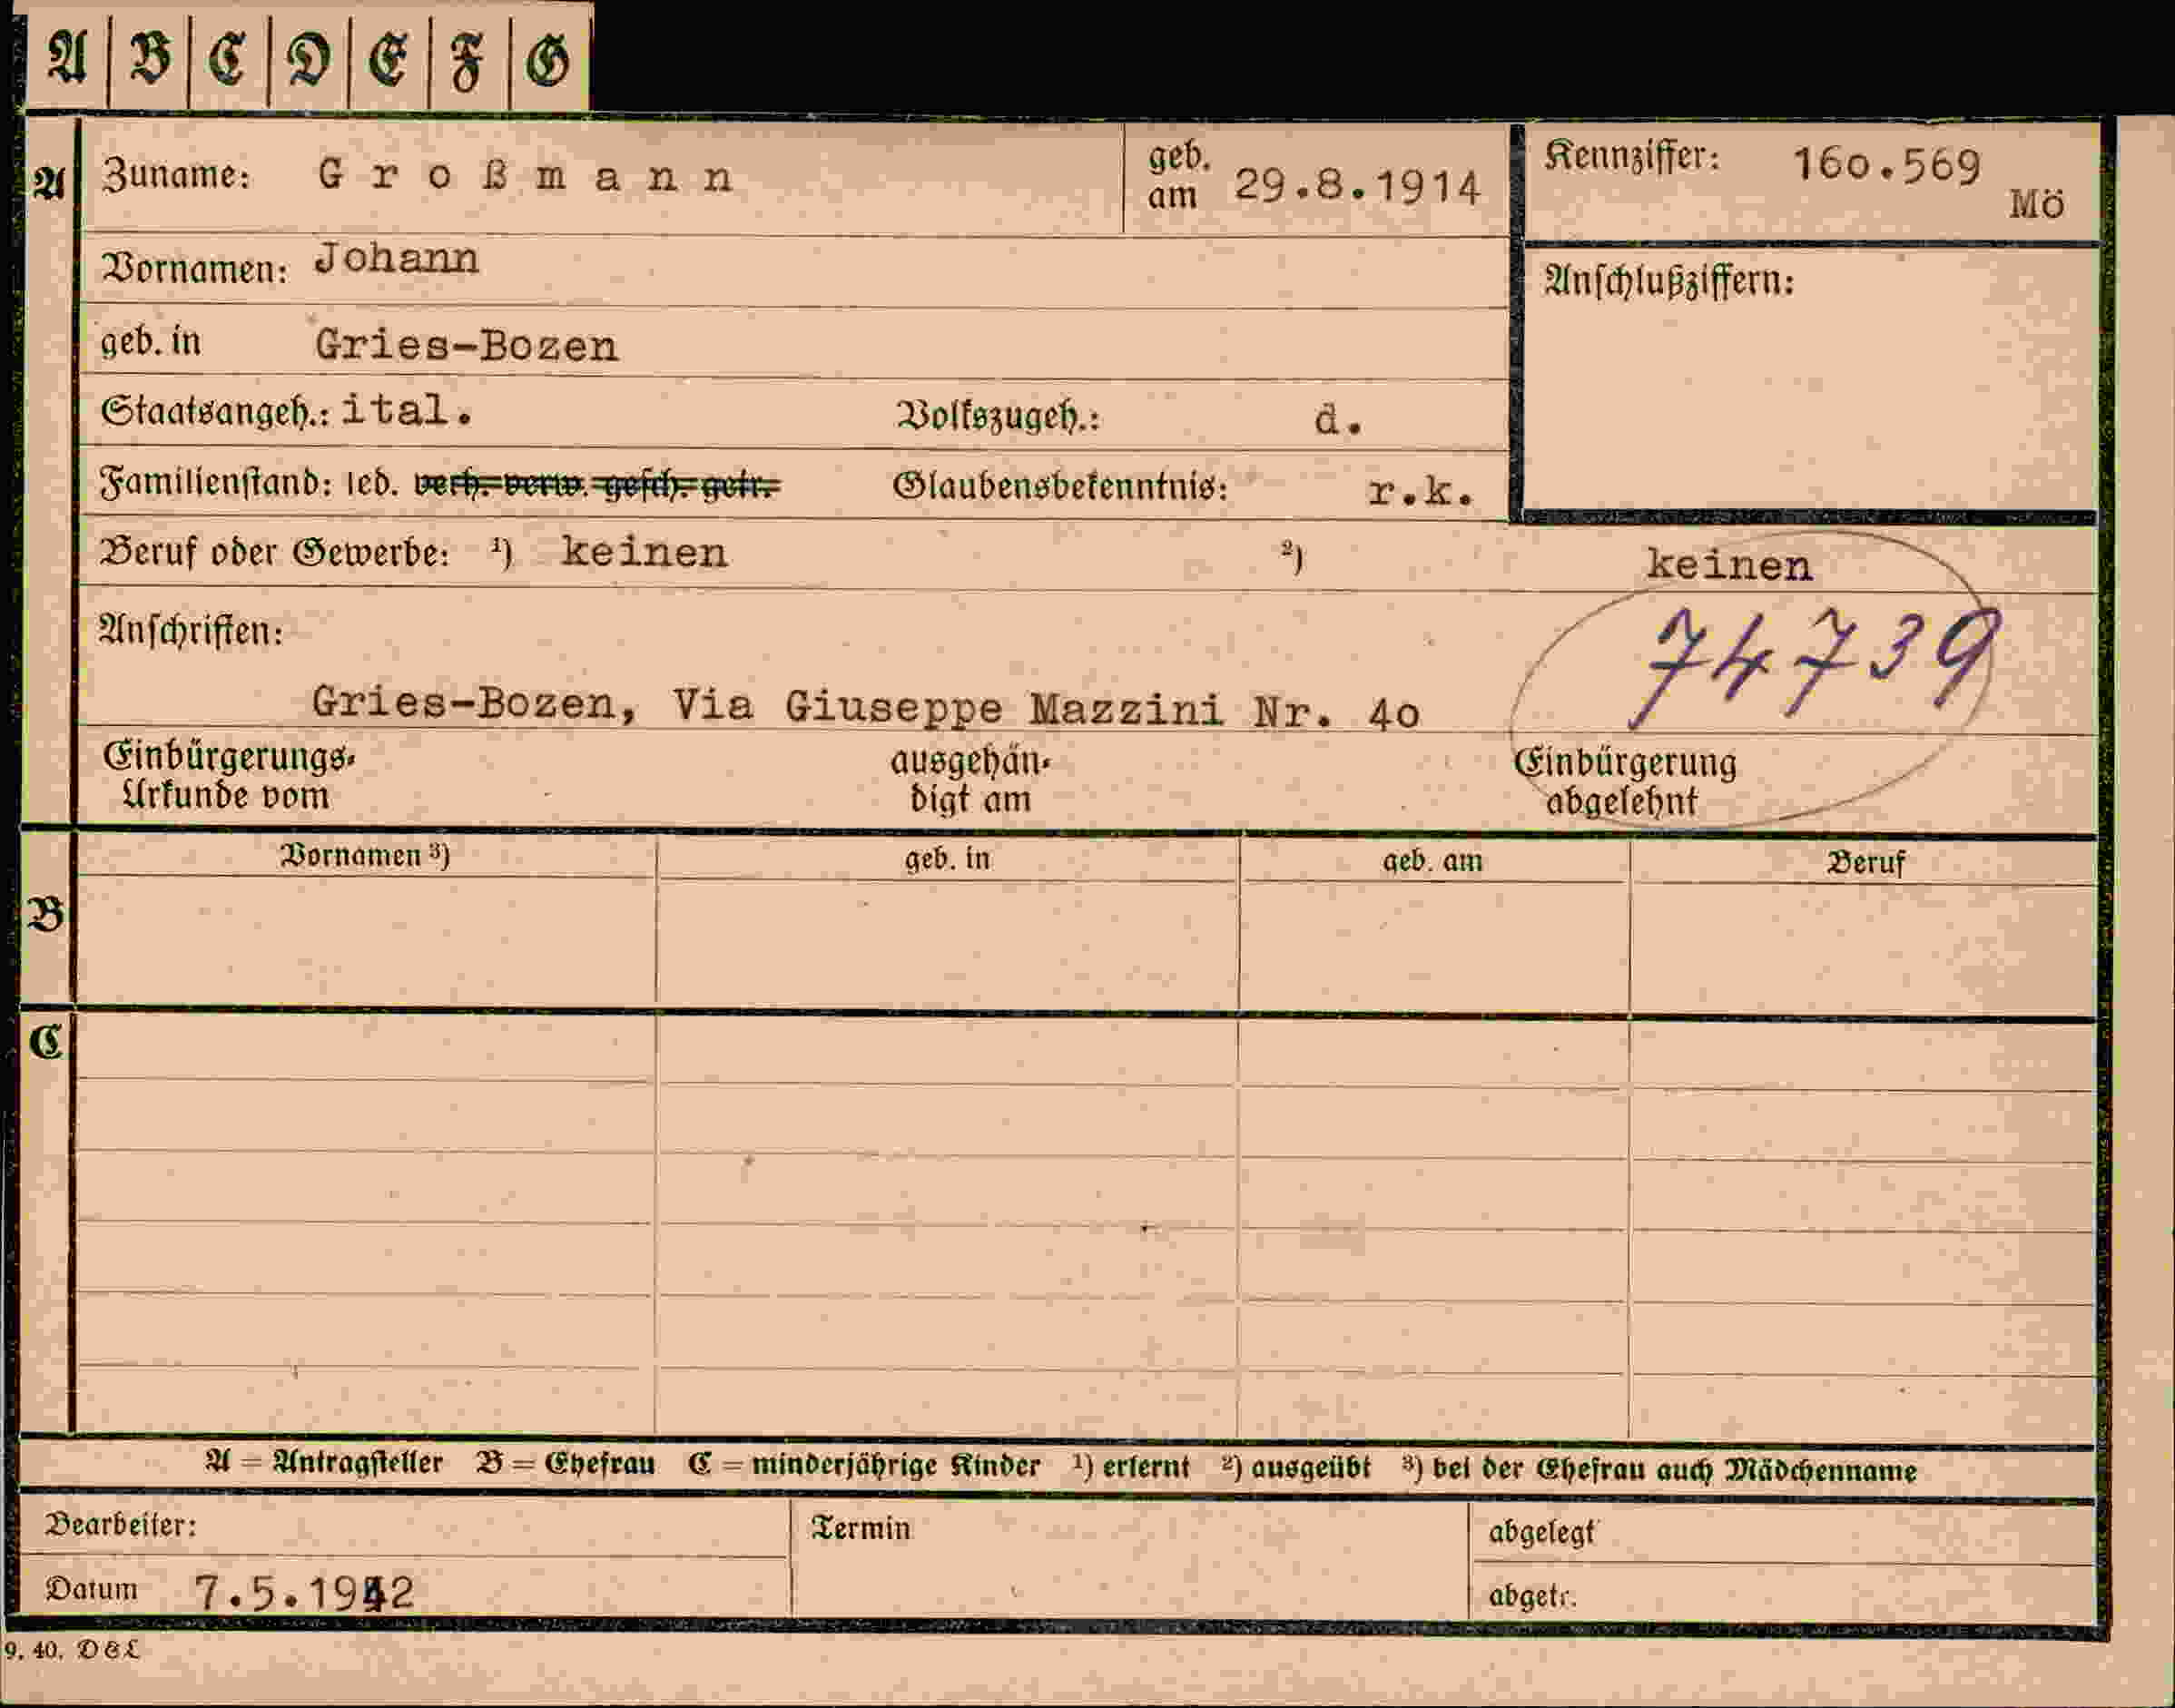 A B C D E F G
A Zuname: Großmann geb. am 29.8.1914 Kennziffer: 160.569 Mö
Vornamen: Johann Anschlußziffern:
geb. in Gries-Bozen
Staatsangeh.: ital. Volkszugeh.: d.
Familienstand: led. verh. verw. gesch. getr. Glaubensbekenntnis: r.k.
Beruf oder Gewerbe: ¹) keinen ²) keinen
Anschriften: 74739
Gries-Bozen, Via Giuseppe Mazzini Nr. 40
Einbürgerungs- ausgehän- Einbürgerung
Urkunde vom digt am abgelehnt
Vornamen ³) geb. in geb. am Beruf
B
C
A = Antragsteller B = Ehefrau C = minderjährige Kinder ¹) erlernt ²) ausgeübt ³) bei der Ehefrau auch Mädchenname
Bearbeiter: Termin abgelegt
Datum 7.5.1942 abgetr.
9. 40. D&L